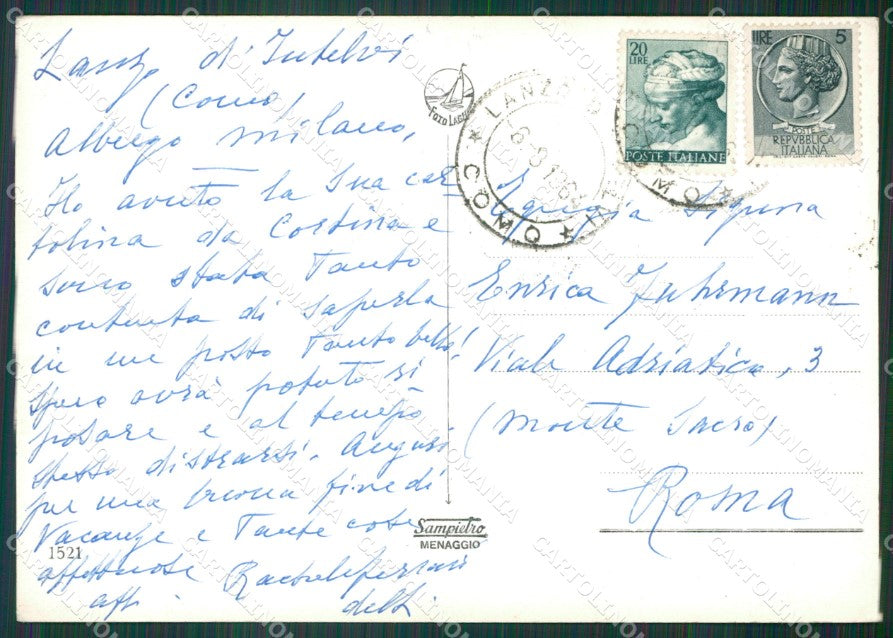 Lanzo d'Intelvi
(Como)
Albergo Milano,
Ho avuto la Sua car
tolina da Cortina e
sono stata tanto
contenta di saperla
in un posto tanto bello!
Spero avrà potuto ri
posare e al tempo
stesso distrarsi. Auguri
per una buona fine di
Vacanze e Tante cose
affettuose
aff.
1521
FOTO LABOR
Sampietro
MENAGGIO
LANZO
COMO
20
LIRE
POSTE ITALIANE
LIRE 5
POSTE
REPVBBLICA
ITALIANA
Signora
Enrica Fuhrmann
Viale Adriatico, 3
(Monte Sacro)
Roma
CARTOLINOMANIA